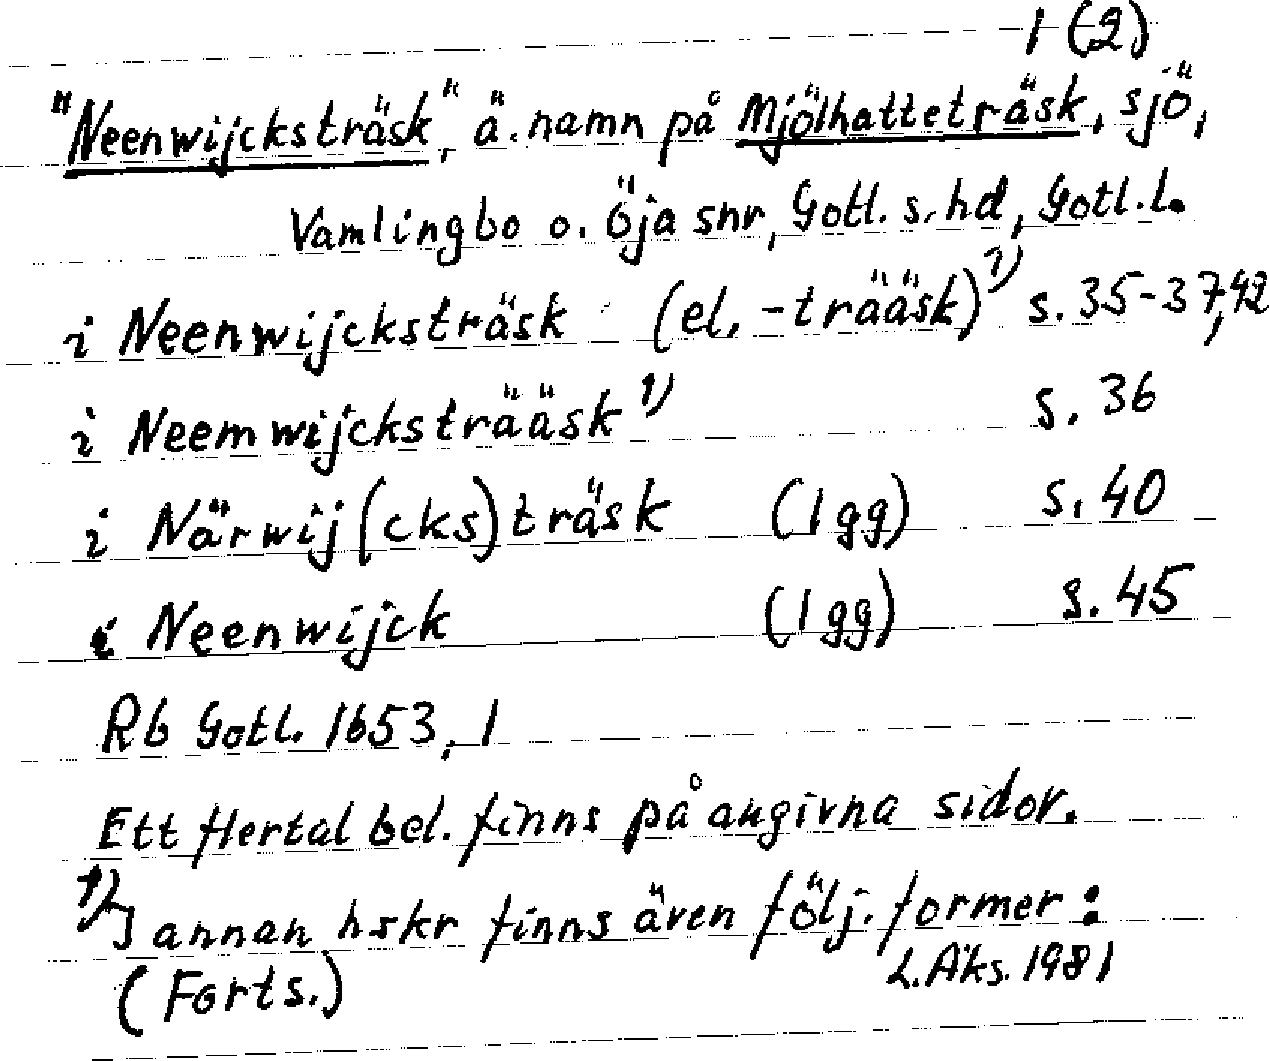 1 (2)
"Neenwijcksträsk", ä. namn på Mjölhatteträsk, sjö,
Vamlingbo o. Öja snr, Gotl. s. hd, Gotl. l.
i Neenwijcksträsk (el. -trääsk)¹⁾ s. 35-37, 42
i Neemwijcksträäsk¹⁾ s. 36
i Närwij(cks)träsk (1 gg) s. 40
i Neenwijck (1 gg) s. 45
Rb Gotl. 1653, 1
Ett flertal bel. finns på angivna sidor.
¹⁾ I annan hskr finns även följ. former:
(Forts.) L. Äks. 1981